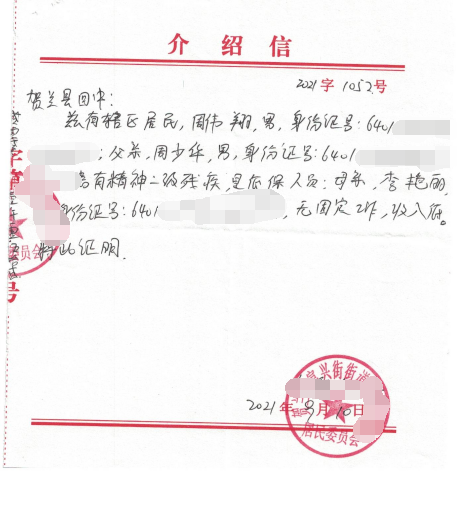 介绍信
2021字1052号
贺兰县回中:
兹有辖区居民,周伟翔,男,身份证号:6401
;父亲,周少华,男,身份证号:6401
患有精神二级残疾,是低保人员;母亲,李艳丽,
身份证号:6401 ,无固定工作,收入低。
特此证明.
富兴街街道
2021年9月10日
居民委员会
字第
号
员会